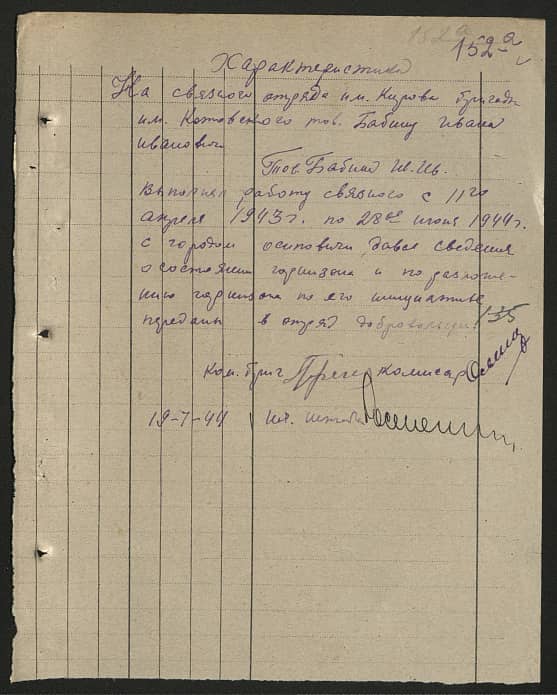 152а
152-а
Характеристика
На связного отряда им. Кирова бригады
им. Котовского тов. Бабину Ивана
Ивановича
Тов. Бабина И. Ив.
Выполнял работу связного с 11го
апреля 1943 г. по 28ое июня 1944 г.
с городом осиповичи, давал сведения
о состоянии гарнизона и по разложе-
нию гарнизона по его инициативе
переданы в отряд добровольцы
135
Ком. бриг комисар
19-7-44 нч. штаба